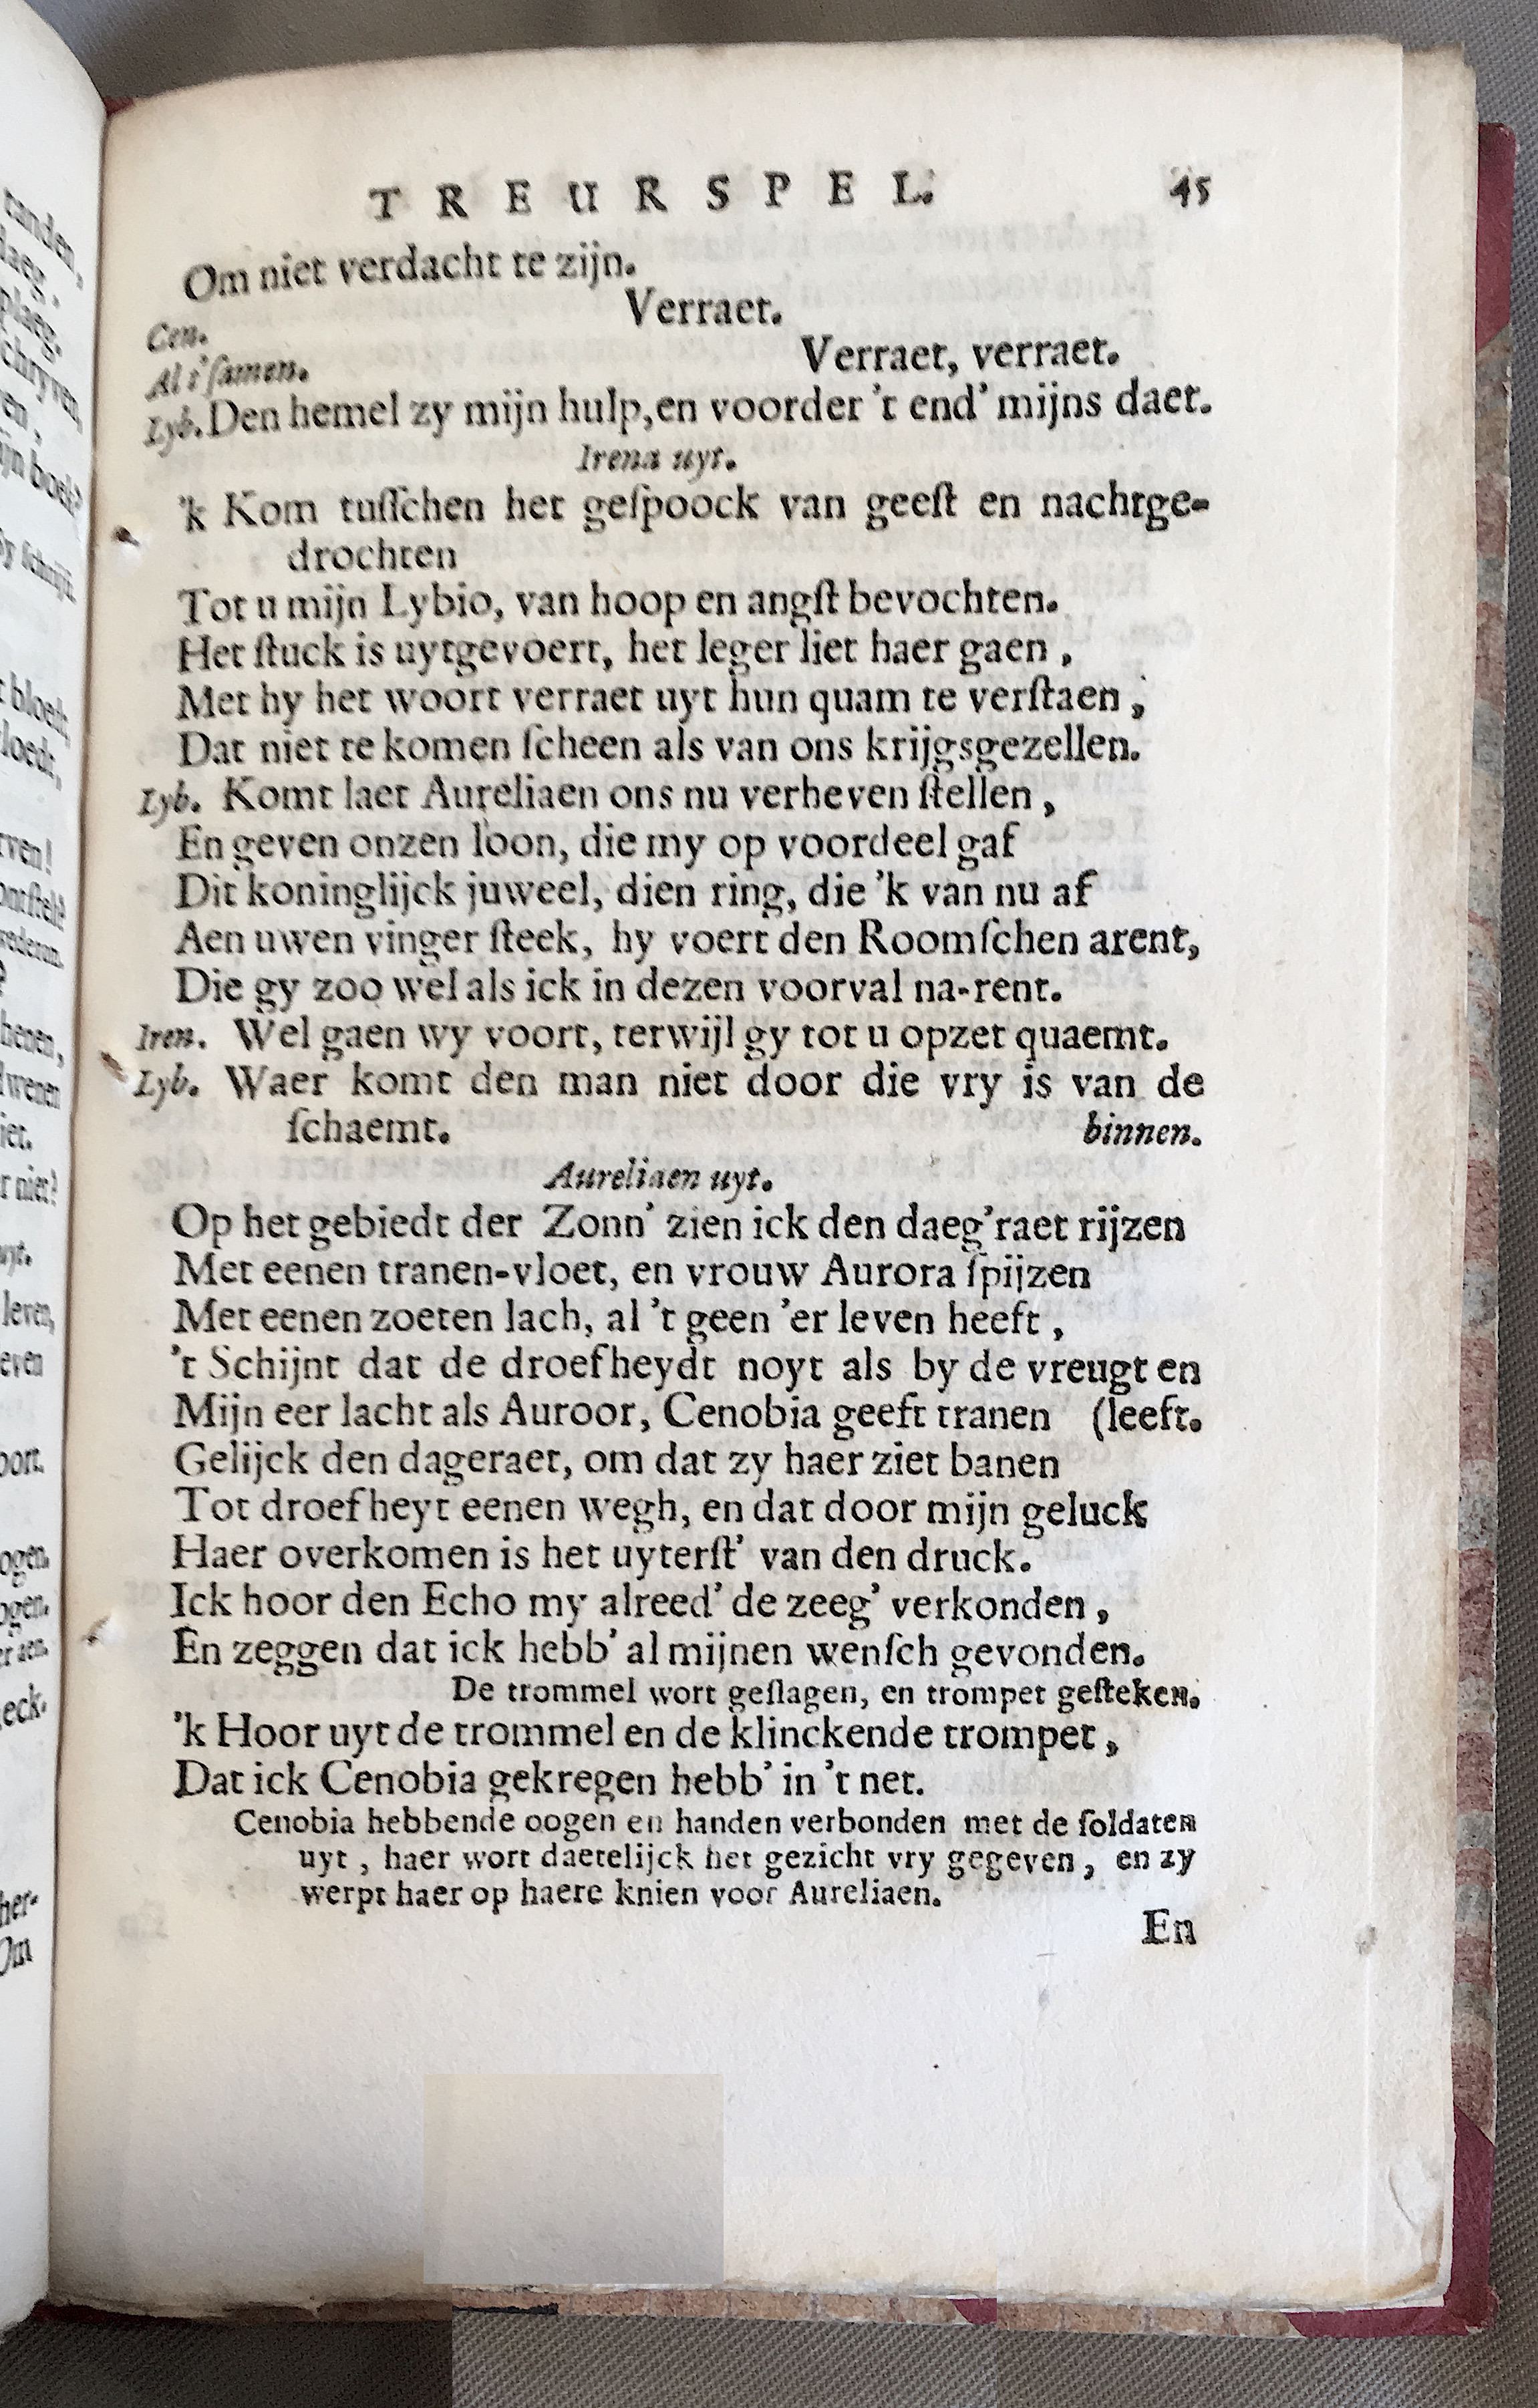 TREURSPEL. 45
Om niet verdacht te zijn.
Cen. Verraet.
Al t'ſamen. Verraet, verraet.
Lyb. Den hemel zy mijn hulp, en voorder 't end' mijns daet.
Irena uyt.
'k Kom tuſſchen het geſpoock van geeſt en nachtge-
drochten
Tot u mijn Lybio, van hoop en angſt bevochten.
Het ſtuck is uytgevoert, het leger liet haer gaen,
Met hy het woort verraet uyt hun quam te verſtaen,
Dat niet te komen ſcheen als van ons krijgsgezellen.
Lyb. Komt laet Aureliaen ons nu verheven ſtellen,
En geven onzen loon, die my op voordeel gaf
Dit koninglijck juweel, dien ring, die 'k van nu af
Aen uwen vinger ſteek, hy voert den Roomſchen arent,
Die gy zoo wel als ick in dezen voorval na-rent.
Iren. Wel gaen wy voort, terwijl gy tot u opzet quaemt.
Lyb. Waer komt den man niet door die vry is van de
ſchaemt. binnen.
Aureliaen uyt.
Op het gebiedt der Zonn' zien ick den daeg'raet rijzen
Met eenen tranen-vloet, en vrouw Aurora ſpijzen
Met eenen zoeten lach, al 't geen 'er leven heeft,
't Schijnt dat de droefheydt noyt als by de vreugt en
Mijn eer lacht als Auroor, Cenobia geeft tranen (leeft.
Gelijck den dageraet, om dat zy haer ziet banen
Tot droefheyt eenen wegh, en dat door mijn geluck
Haer overkomen is het uyterſt' van den druck.
Ick hoor den Echo my alreed' de zeeg' verkonden,
En zeggen dat ick hebb' al mijnen wenſch gevonden.
De trommel wort geſlagen, en trompet geſteken.
'k Hoor uyt de trommel en de klinckende trompet,
Dat ick Cenobia gekregen hebb' in 't net.
Cenobia hebbende oogen en handen verbonden met de ſoldaten
uyt, haer wort daetelijck het gezicht vry gegeven, en zy
werpt haer op haere knien voor Aureliaen.
En